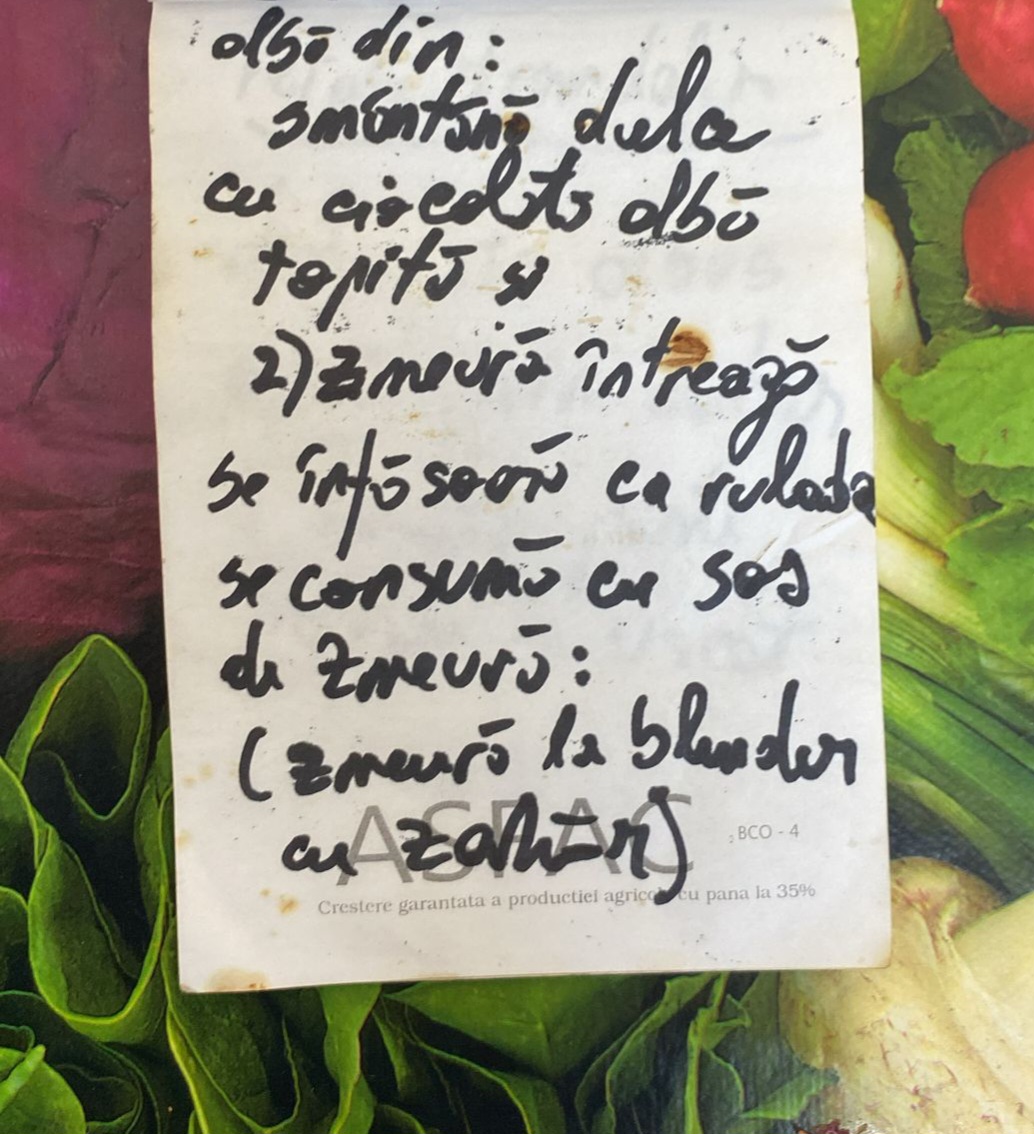 albă din:
smântână dulce
cu ciocolată albă
topită și
2) zmeură întreagă
se înfășoară ca rulada
se consumă cu sos
de zmeură:
(zmeură la blender
cu zahăr)
ASPAC
BCO - 4
Crestere garantata a productiei agricole cu pana la 35%